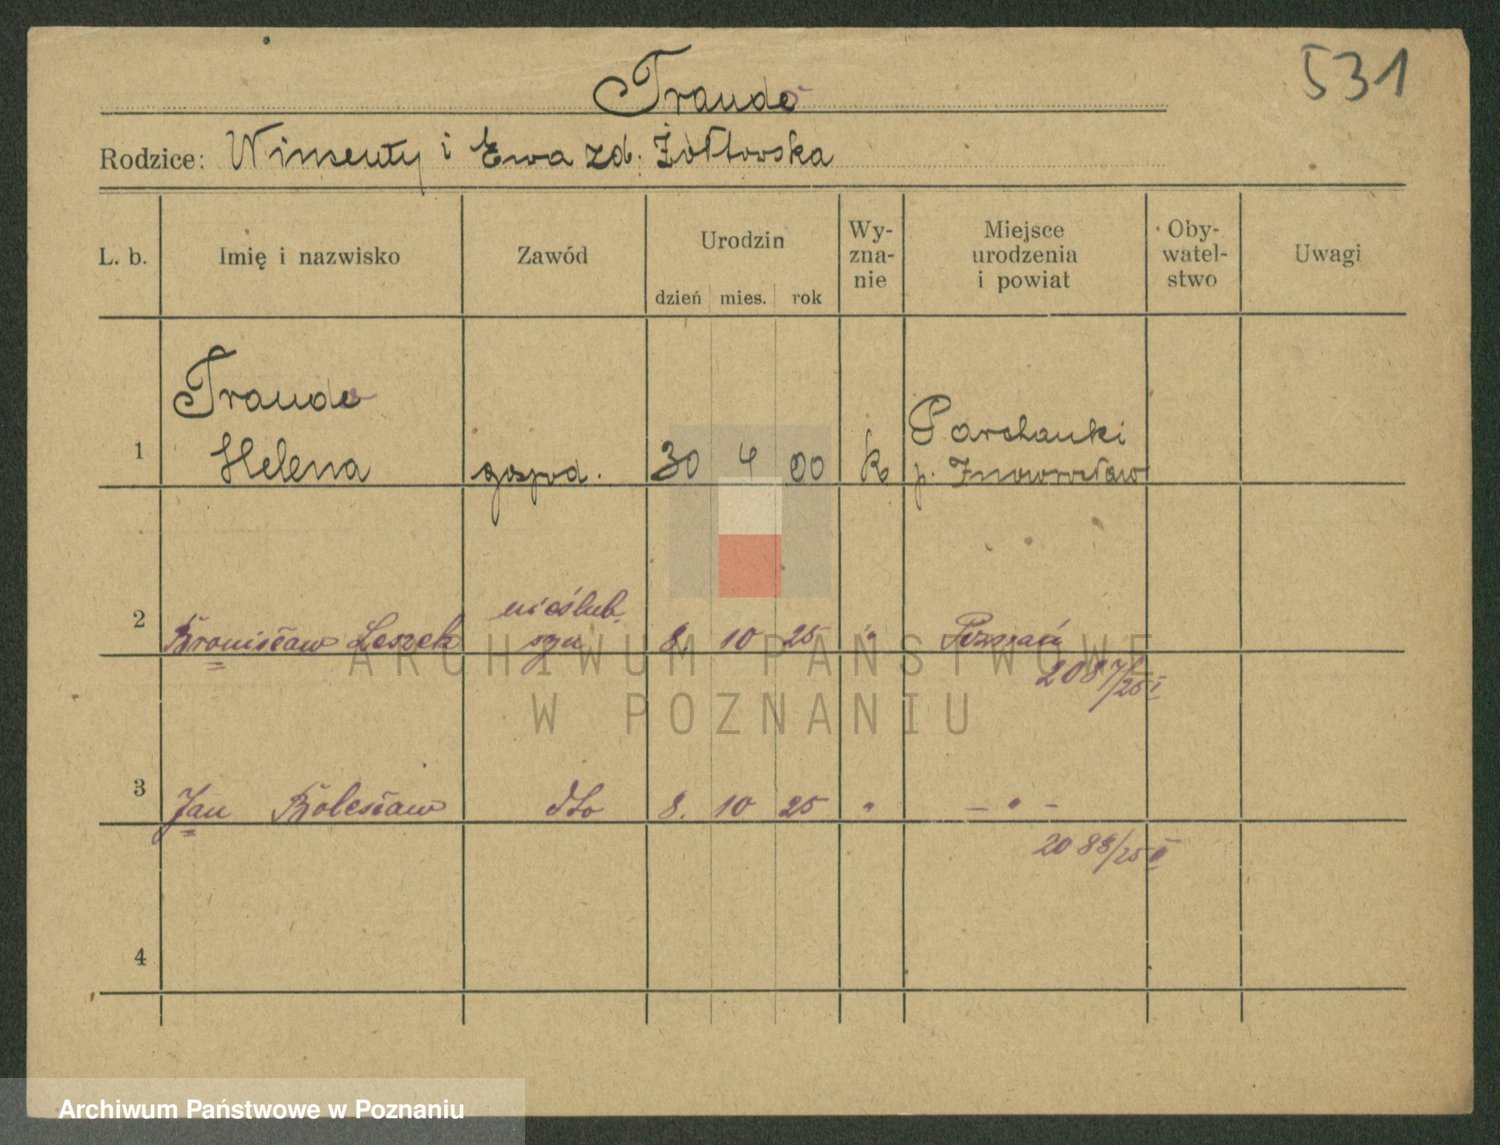 531
Traude
Rodzice: Wincenty i Ewa zd. Żółtowska
L. b.
Imię i nazwisko
Zawód
Urodzin
dzień mies. rok
Wy-
zna-
nie
Miejsce
urodzenia
i powiat
Oby-
watel-
stwo
Uwagi
Traude
1 Helena gospod. 30 4 00 k
Parchanki
p. Inowrocław
nieślub.
2 Bronisław Leszek syn 8. 10 25 " Poznań
2087/25 I
3 Jan Bolesław dto 8. 10 25 " – " –
2088/25 II
4
ARCHIWUM PAŃSTWOWE
W POZNANIU
Archiwum Państwowe w Poznaniu